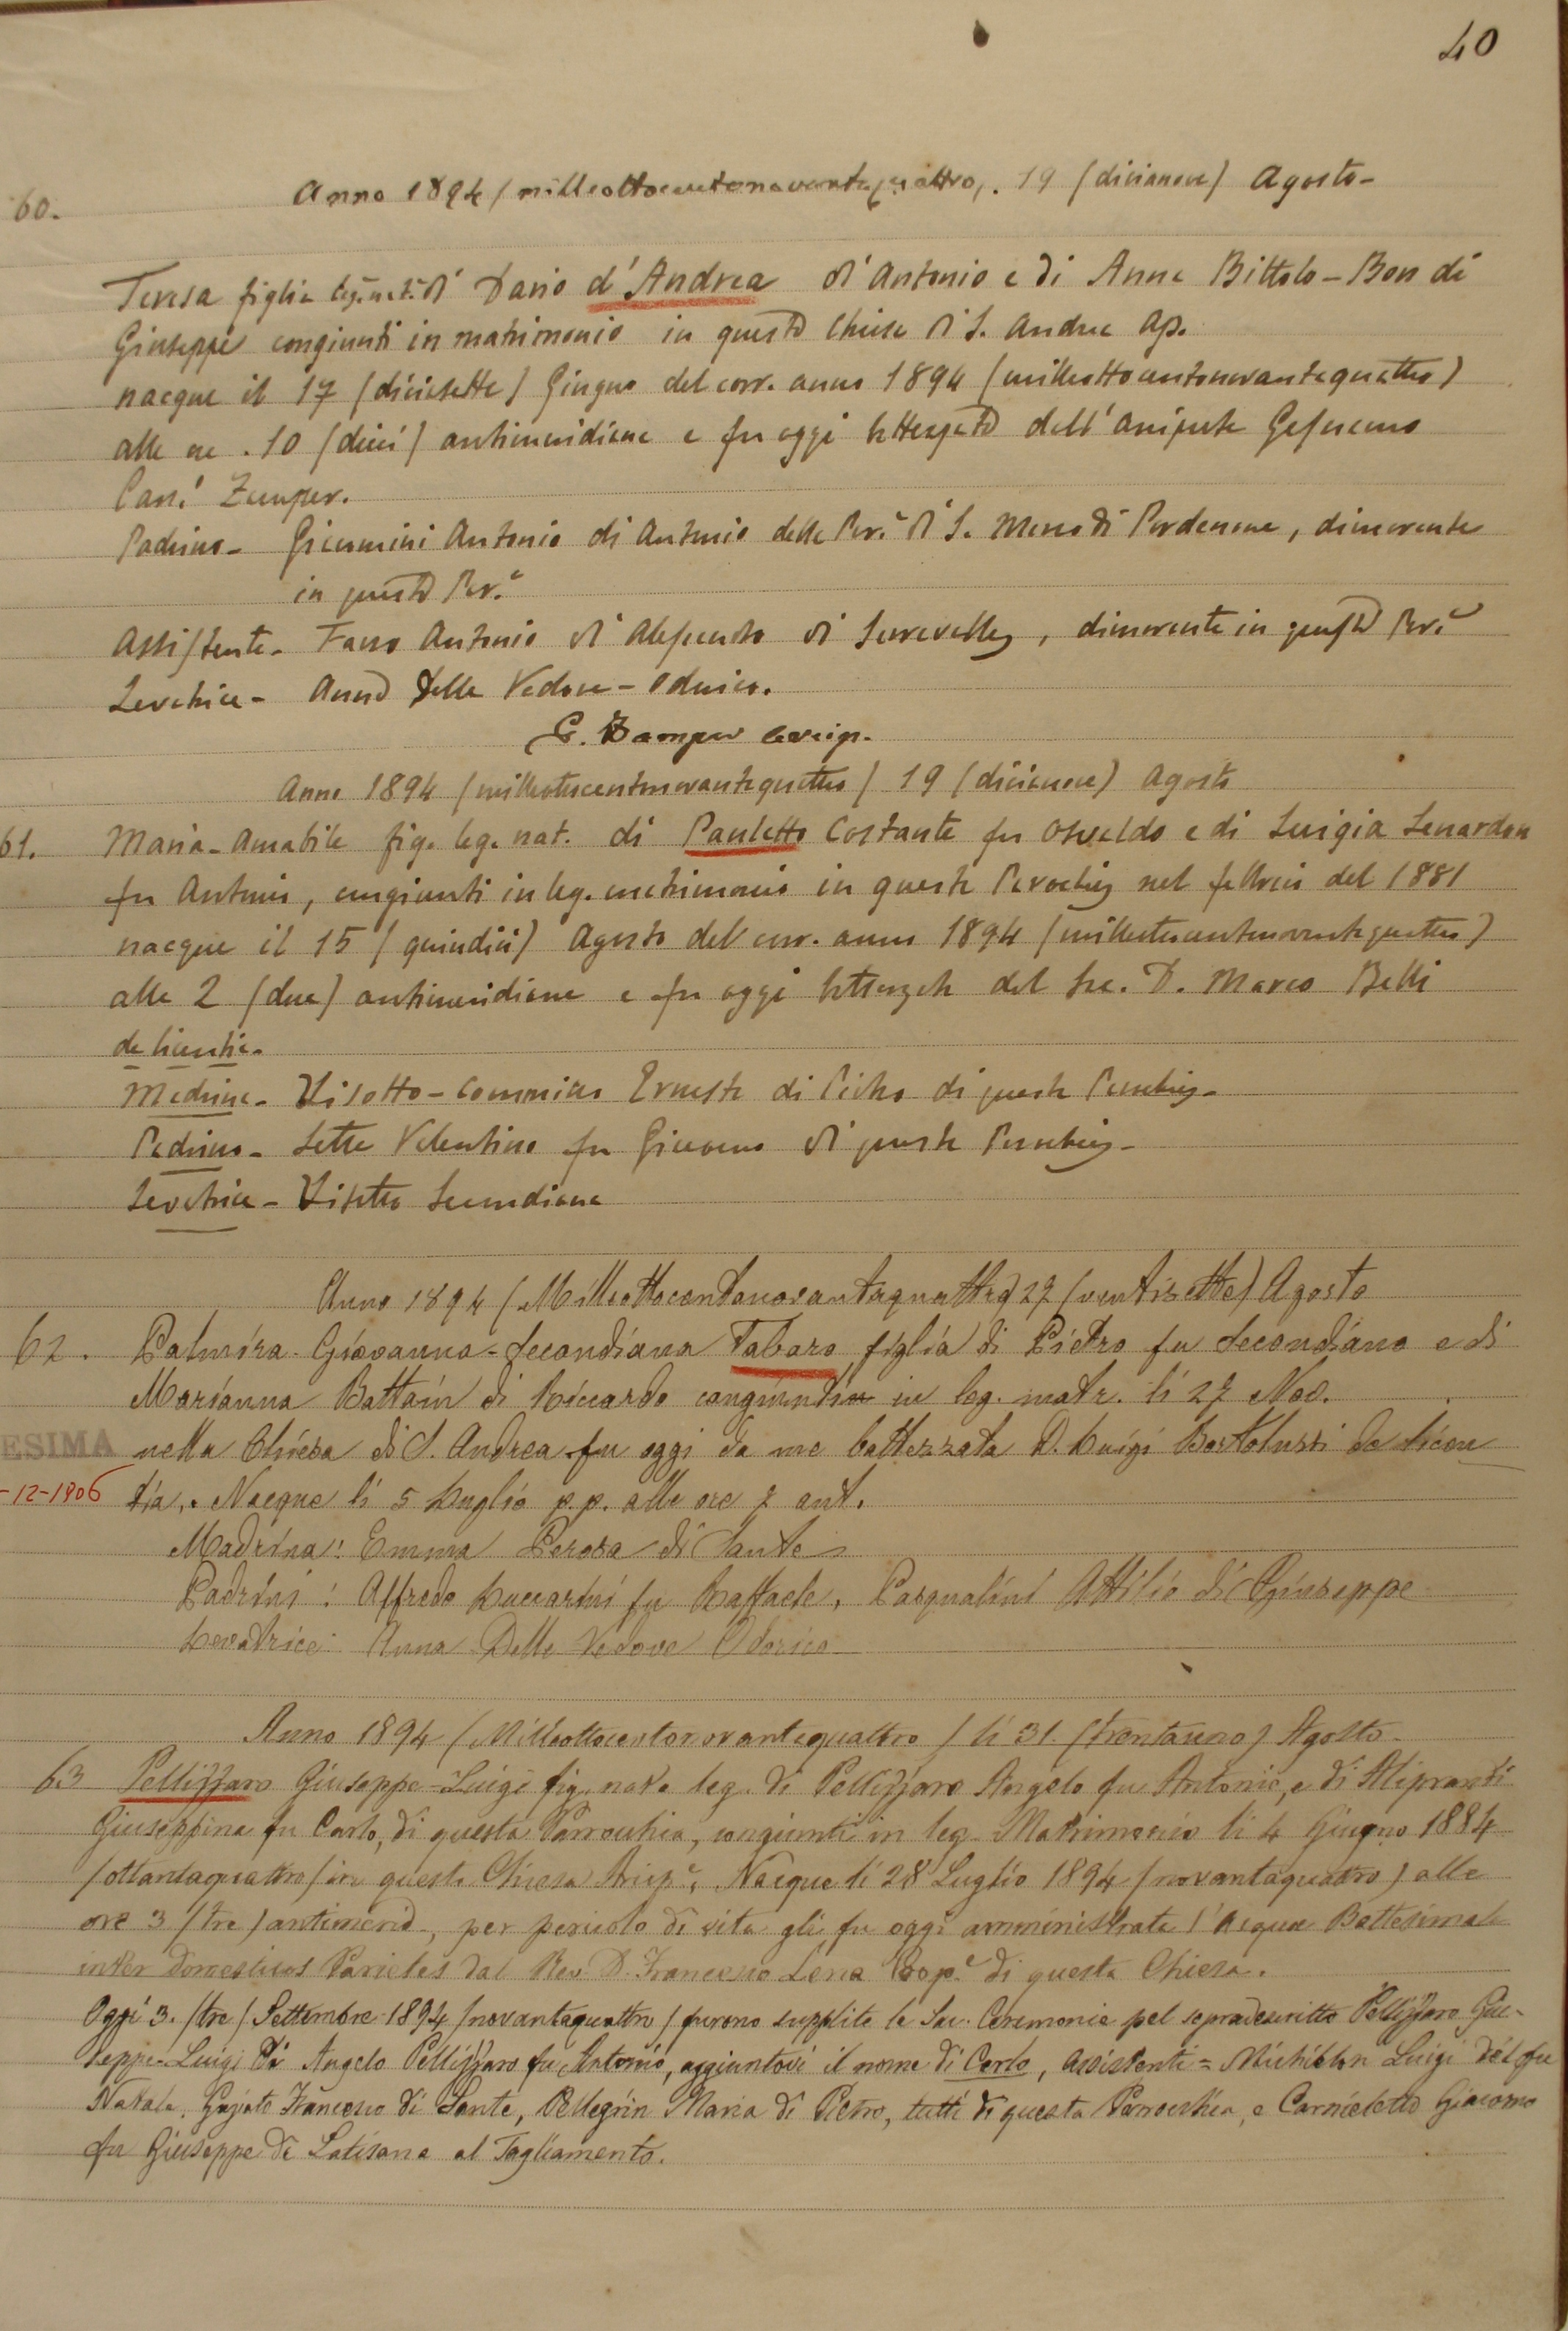 40
60. Anno 1894 (milleottocentonovantaquattro). 19 (dicianove) Agosto-
Teresa figlia leg. nat. di Dario d'Andrea di Antonio e di Anna Bittolo-Bon di
Giuseppe congiunti in matrimonio in questa Chiesa di S. Andrea Ap.
nacque il 17 (diciasette) Giugno del corr. anno 1894 (milleottocentonovantaquattro)
alle ore . 10 (dieci) antimeridiane e fu oggi battezzata dall'Arciprete
Can.
Padrino- Giacomini Antonio di Antonio della Par.a di S. Marco di Pordenone, dimorante
in questa Par.a
Assistente- Antonio di di Serravalle, dimorante in questa Par.a
Levatrice- Anna Delle Vedove-Odorico.
Zamper Arcip.
Anno 1894 (milleottocentonovantaquattro) 19 (dicianove) Agosto
61. Maria-Amabile fig. leg. nat. di Pauletto Costante fu Osvaldo e di Luigia Lenardon
fu Antonio, congiunti in leg. matrimonio in questa Parochia nel febbraio del 1881
nacque il 15 (quindici) Agosto del corr. anno 1894 (milleottocentonovantaquattro)
alle 2 (due) antimeridiane e fu oggi battezzata dal Sac. D. Marco Belli
de licentia-
Madrina- Visotto-Comunion Ernesta di Pietro di questa Parochia-
Padrino- Sette Valentino fu Giacomo di questa Parochia-
Levatrice- Visotto Secondiana
Anno 1894 (Milleottocentonovantaquattro) 27 (ventisette) Agosto
62. Palmira-Giovanna-Secondiana Tabaro figlia di Pietro fu Secondiano e di
Marianna Battain di Riccardo congiunti in leg. matr. li 27 Nov.
ESIMA nella Chiesa di S. Andrea fu oggi da me battezzata D. Luigi Bortolussi de licen
-12-1906 tia,. Nacque li 5 Luglio p.p. alle ore 7 ant.
Madrina: Emma Perosa di Sante
Padrini: Alfredo Luccarini fu Raffaele, Pasqualini Attilio di Giuseppe
Levatrice: Anna Delle Vedove Odorico
Anno 1894 (Milleottocentonovantaquattro) li 31. (trentauno) Agosto-
63 Pellizzaro Giuseppe=Luigi fig. nat. e leg. di Pellizzaro Angelo fu Antonio, e di Aliprandi
Giuseppina fu Carlo, di questa Parrochia, congiunti in leg. Matrimonio li 4 Giugno 1884
(ottantaquattro) in questa Chiesa Arcip.e. Nacque li 28 Luglio 1894 (novantaquattro) alle
ore 3 (tre) antimerid., per pericolo di vita gli fu oggi amministrata l'Acqua Battesimale
inter domesticos Parietes dal Rev. D. Francesco Lena Coop.e di questa Chiesa.
Oggi 3. (tre) Settembre 1894 (novantaquattro) furono supplite le Sac. Ceremonie pel sopradescritto Pellizzaro Giu-
seppe-Luigi di Angelo Pellizzaro fu Antonio, aggiuntovi il nome di Carlo, Assistenti= Michielon Luigi del fu
Natale, Gajato Francesco di Sante, Pellegrin Maria di Pietro, tutti di questa Parrochia, e Carnieletto Giacomo
fu Giuseppe di Latisana al Tagliamento.